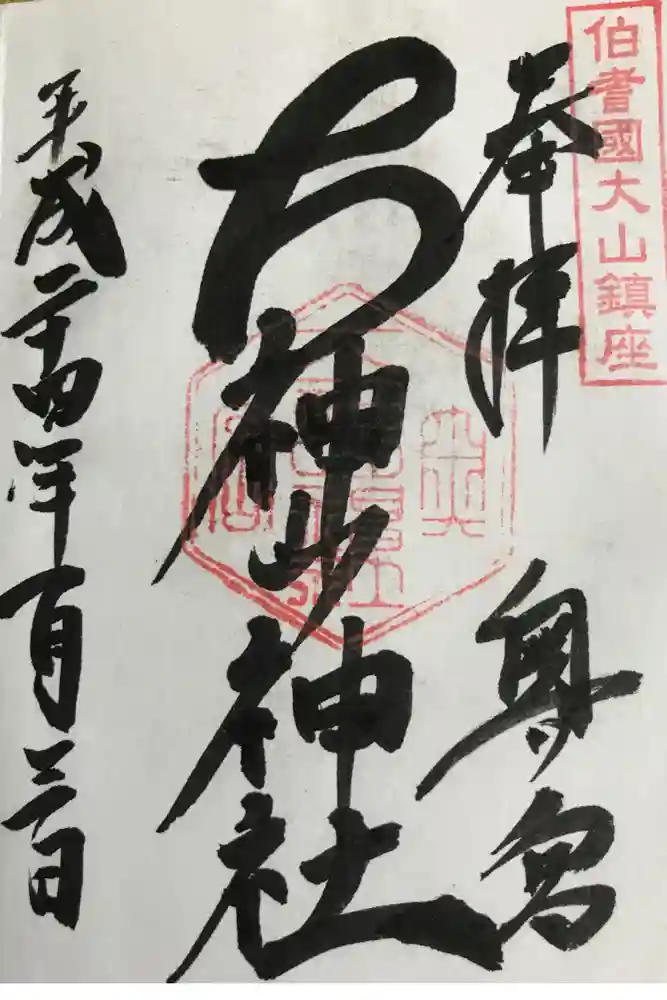 伯耆國大山鎮座
奉拝
奥宮
大神山神社
平成二十四年月三日